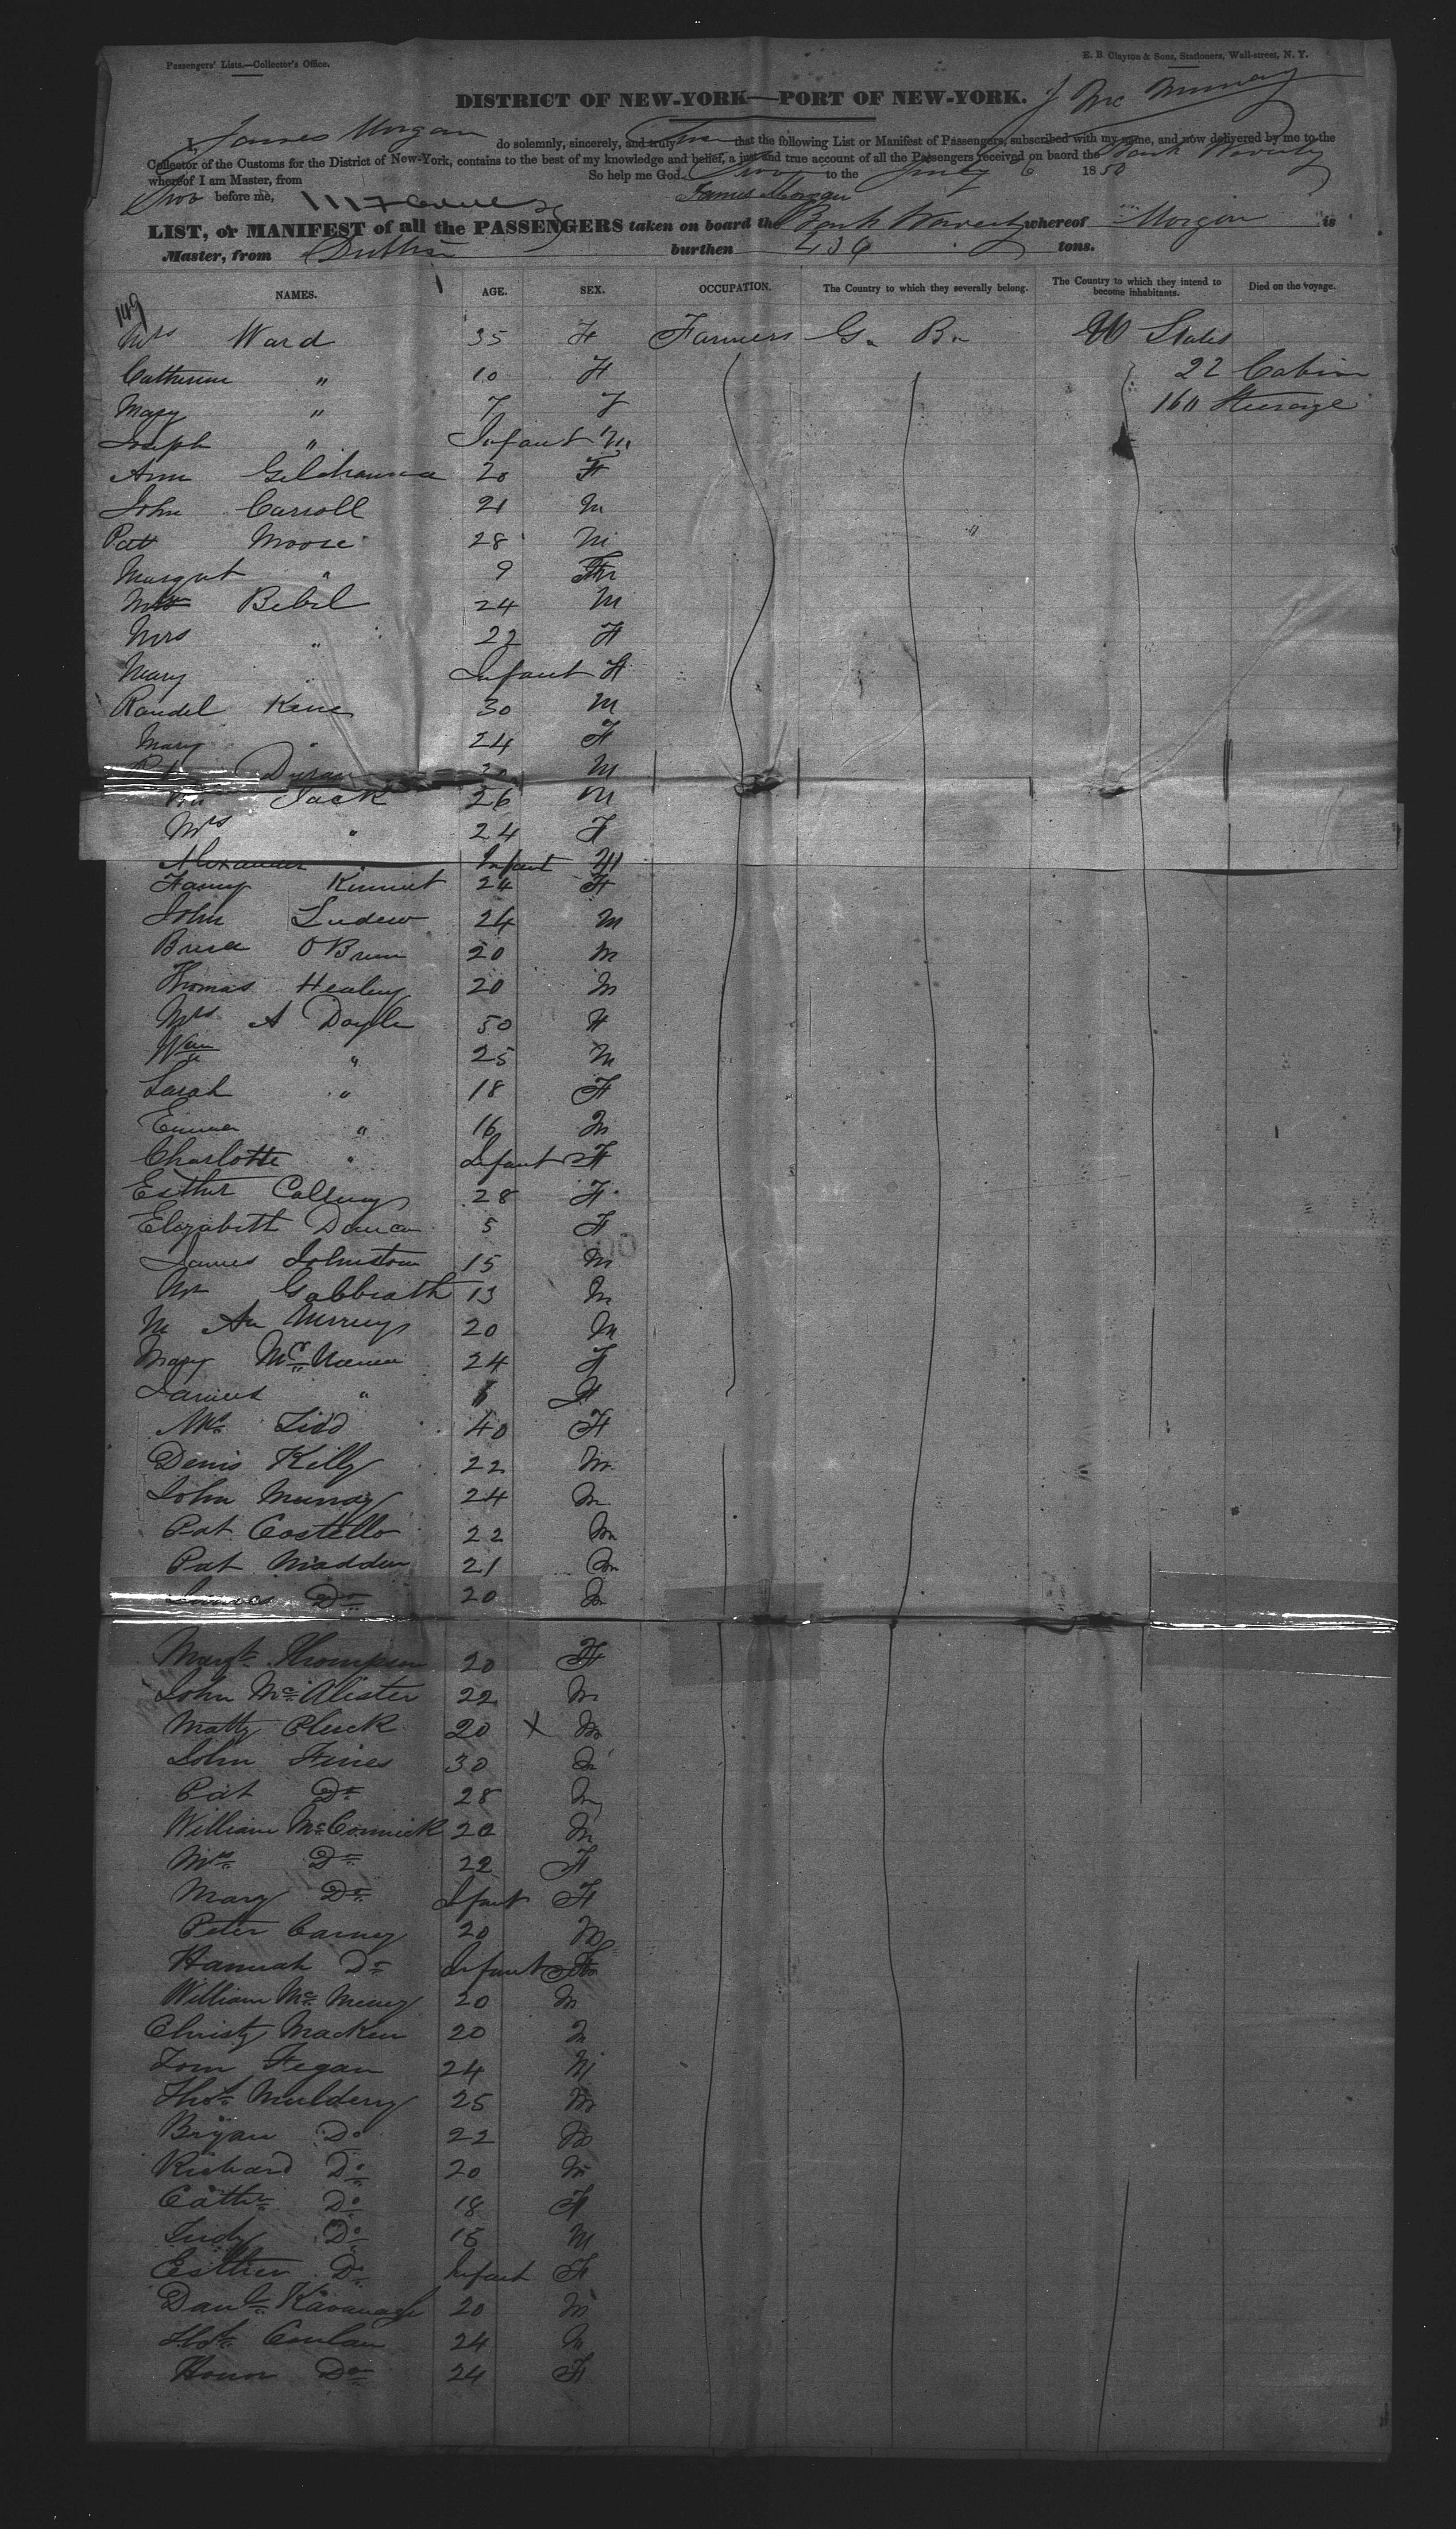 Passengers' Lists.—Collector's Office.
E. B. Clayton & Sons, Stationers, Wall-street, N. Y.
DISTRICT OF NEW-YORK—PORT OF NEW-YORK.
J Mc Murray
I, James Morgan do solemnly, sincerely, and truly that the following List or Manifest of Passengers, subscribed with my name, and now delivered by me to the
Collector of the Customs for the District of New-York, contains to the best of my knowledge and belief, a just and true account of all the Passengers received on baord the Bark Waverly
whereof I am Master, from So help me God. to the July 6 1850
before me, James Morgan
LIST, or MANIFEST of all the PASSENGERS taken on board the Bark Waverly whereof Morgan is
Master, from Dublin burthen 436 tons.
NAMES. AGE. SEX. OCCUPATION. The Country to which they severally belong. The Country to which they intend to become inhabitants. Died on the voyage.
149
Mrs Ward 35 F Farmers G. B. U States
Catherine " 10 F 22 Cabin
Mary " 7 F 160 Steerage
Joseph " Infant M
Ann 20 F
John Carroll 21 M
Patt Moore 28 M "
Margret " 9 F
Bibil 24 M
Mrs " 22 F
Mary " Infant F
Randel Kene 30 M
Mary " 24 F
Duran M
Jack 26 M
Mrs " 24 F
Alexander " Infant M
Fanny 24 F
John Ludew 24 M
O Brien 20 M
Thomas Healey 20 M
Mrs A Doyle 50 F
Wm " 25 M
Sarah " 18 F
Emma " 16 M
Charlotte " Infant F
Esther 28 F
Elizabeth Duncan 5 F
James Johnston 15 M
Gabbrath 13 M
M An Murray 20 M
Mary 24 F
James " F
Mrs Lidd 40 F
Denis Killy 22 M
John Munday 24 M
Pat Costello 22 M
Pat Madden 21 M
James Do 20 M
Margt Thompson 20 F
John McAlister 22 M
Matty Pluck 20 X M
John Fines 30 M
Pat Do 28 M
William McCormick 20 M
Mrs Do 22 F
Mary Do Infant F
Peter Carney 20 M
Hannah Do Infant F
William 20 M
Christy Macken 20 M
Tom Fegan 24 M
Thos Muldery 25 M
Bryan Do 22 M
Richard Do 20 M
Cathe Do 18 F
Judy Do 15 M
Esther Do Infant F
Danl Kavanagh 20 M
Thos Conlan 24 M
Honor Do 24 F